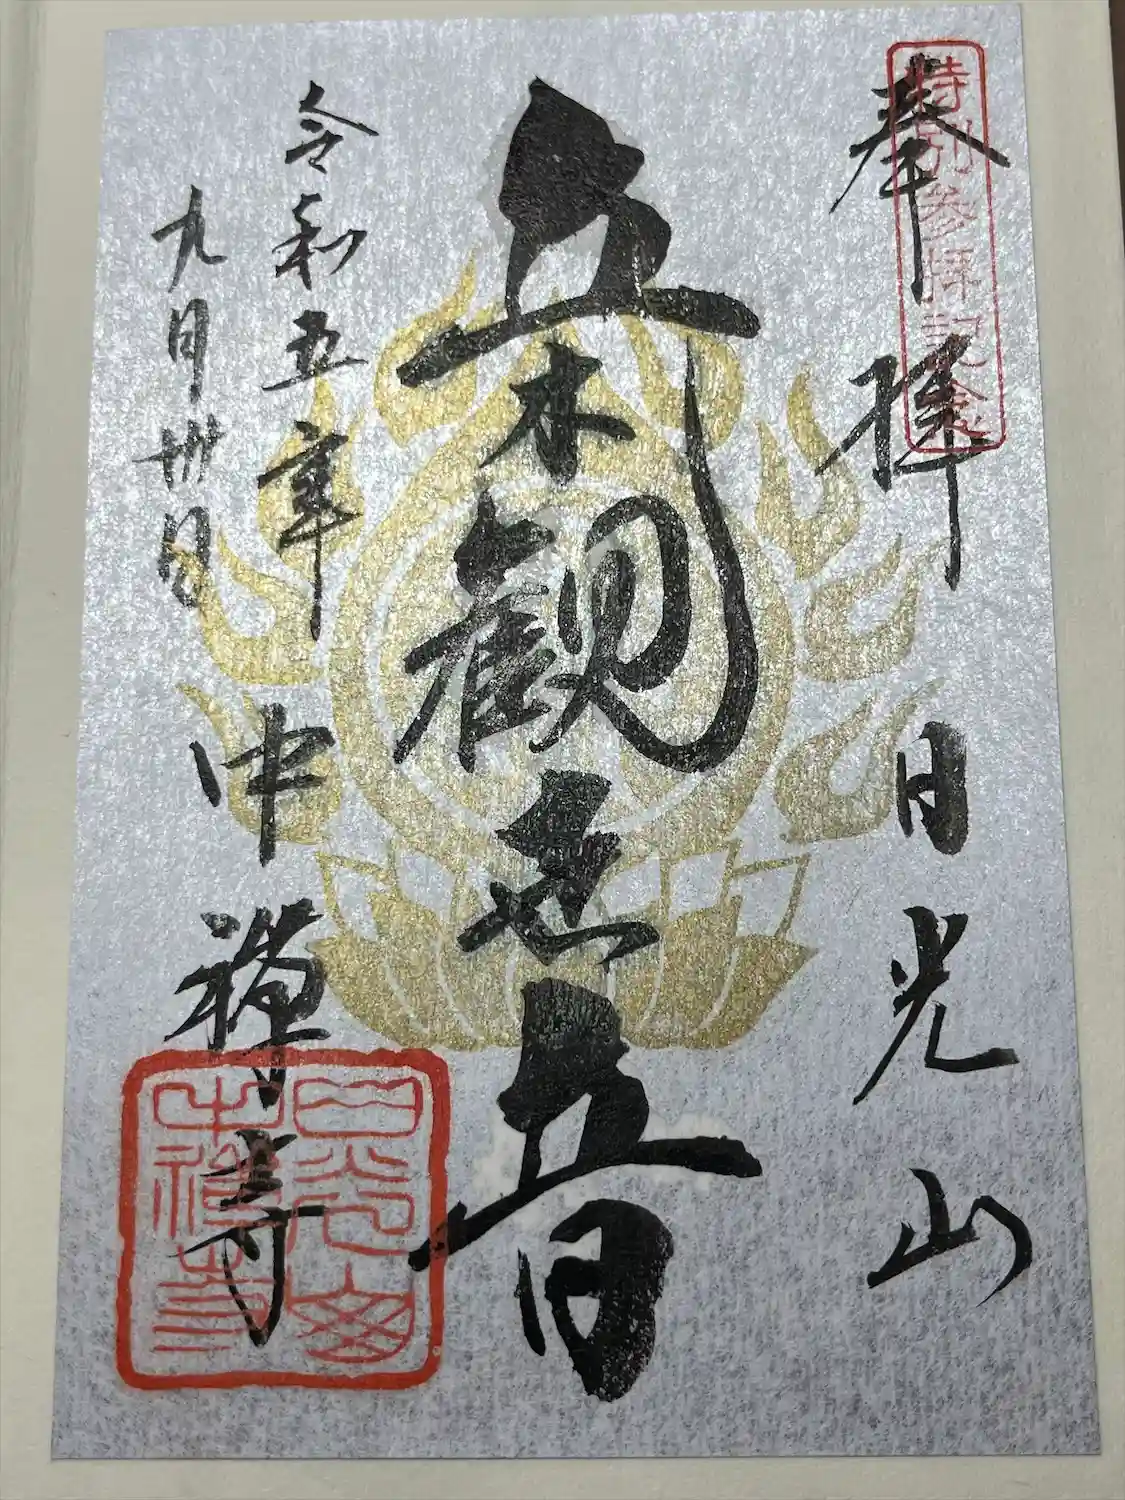 特別参拝記念
奉拝 日光山
立木観世音
令和五年 中禅寺
九月卅日
日光山
中禅寺